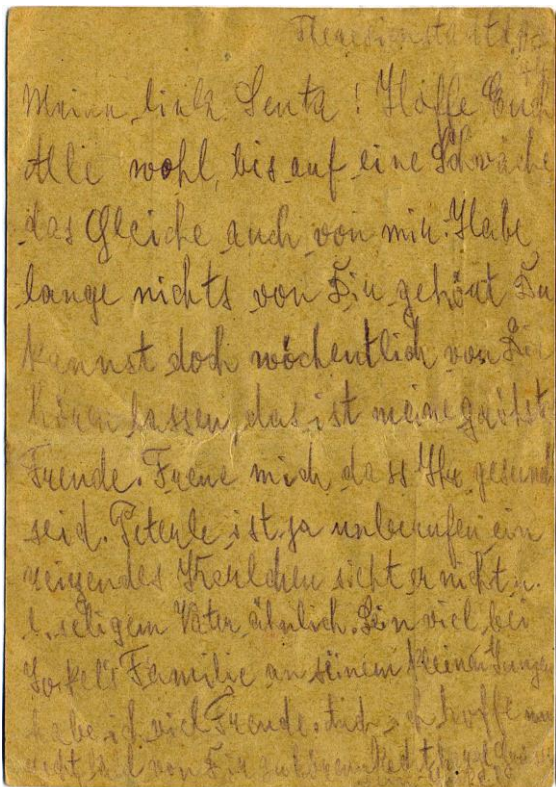 Theresienstadt
Meine liebe Senta! Hoffe Euch
Alle wohl, bis auf eine Schwäche
das Gleiche auch von mir. Habe
lange nichts von Dir gehört Du
kannst doch wöchentlich von Dir
hören lassen, das ist meine größte
Freude. Freue mich dass Ihr gesund
seid. Peterle ist ja unberufen ein
reizendes Kerlchen sieht er nicht s.
l. seligem Vater ähnlich. Bin viel bei
Familie an seinem kleinen Jungen
habe ich viel Freude. ich hoffe nun
recht bald von Dir zu hören.